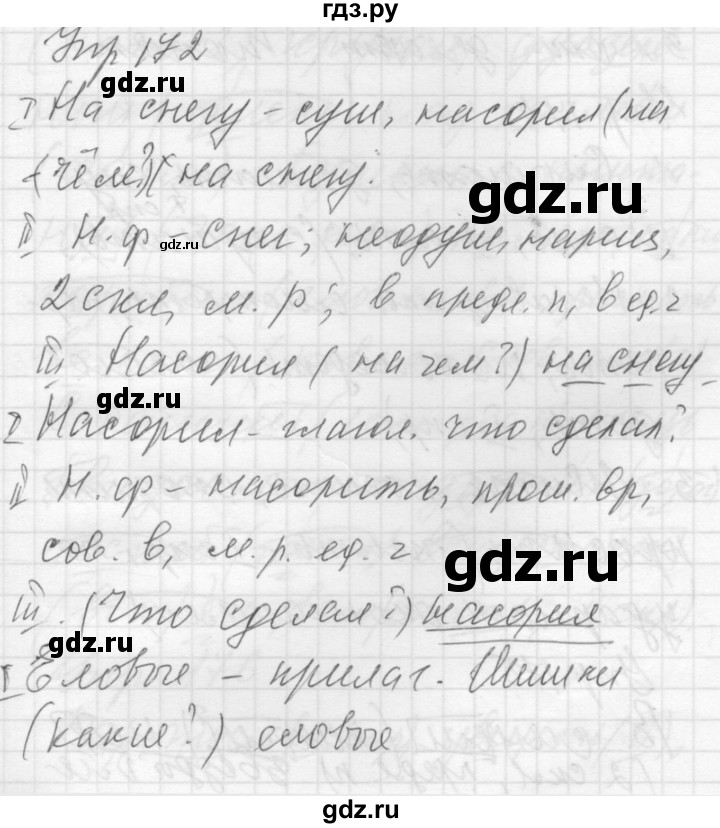 гдз.ру
Упр 172
gdz.ru
I На снегу – сущ, насорил (на
чём?) на снегу.
gdz.ru
gdz.ru
II Н.ф – снег; неодуш, нариц,
2 скл, м.р; в предл.п, в ед.ч
III Насорил (на чем?) на снегу
gdz.ru
I Насорил – глагол. что сделал?
II Н.ф – насорить, прош. вр,
сов. в, м.р. ед.ч
gdz.ru
III. (Что сделал?) насорил
gdz.ru
I Еловые – прилаг. Шишки
(какие?) еловые
gdz.ru